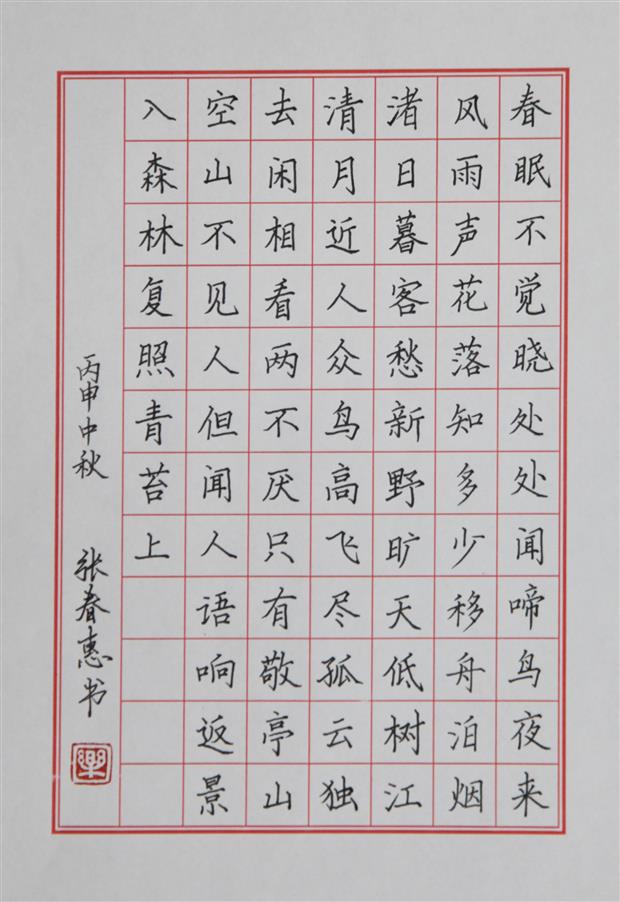 春眠不觉晓处处闻啼鸟夜来
风雨声花落知多少移舟泊烟
渚日暮客愁新野旷天低树江
清月近人众鸟高飞尽孤云独
去闲相看两不厌只有敬亭山
空山不见人但闻人语响返景
入森林复照青苔上
丙申中秋 张春惠书